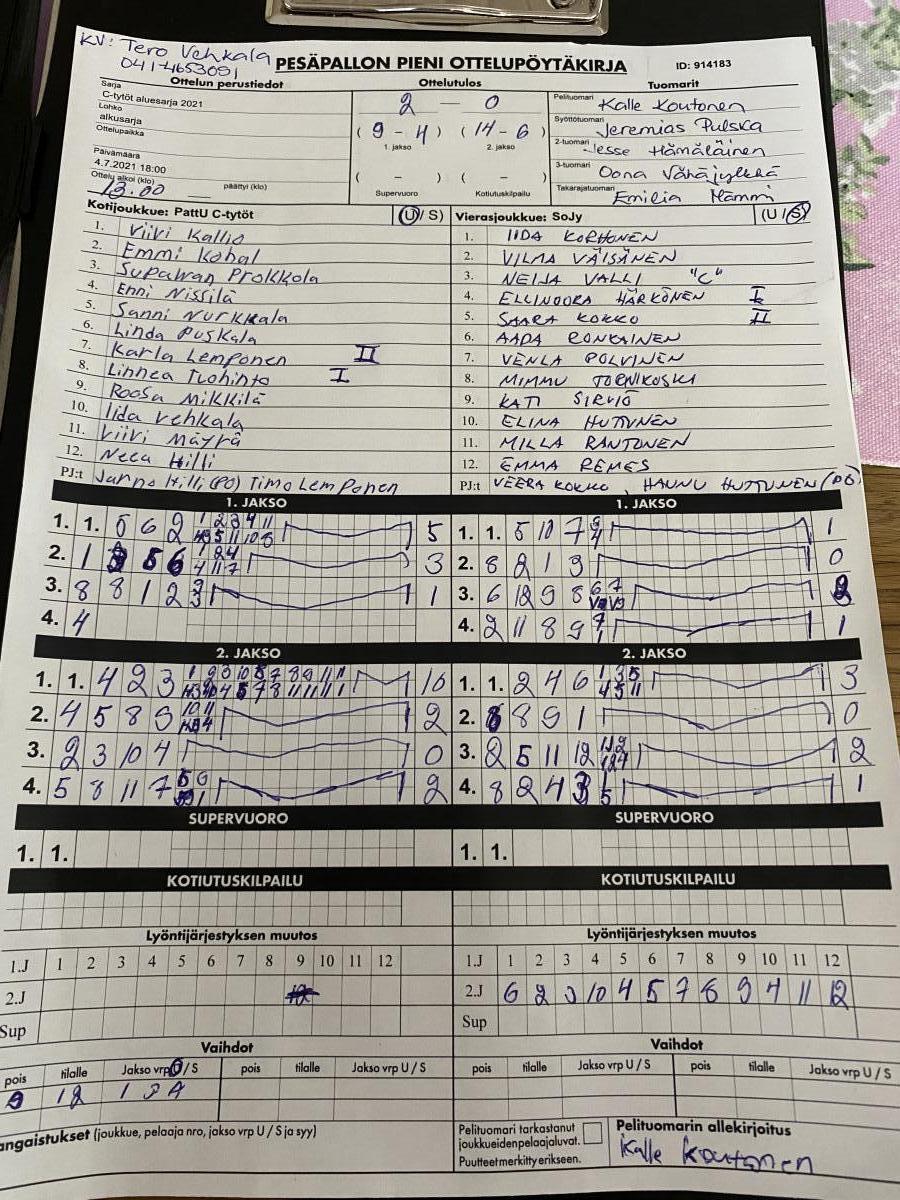 KV: Tero Vehkala
041-4653091
PESÄPALLON PIENI OTTELUPÖYTÄKIRJA
ID: 914183
Ottelun perustiedot
Sarja
C-tytöt aluesarja 2021
Lohko
alkusarja
Ottelupaikka
Päivämäärä
4.7.2021 18:00
Ottelu alkoi (klo) päättyi (klo)
18.00
Ottelutulos
2 — 0
( 9 - 4 ) ( 14 - 6 )
1. jakso 2. jakso
( - ) ( - )
Supervuoro Kotiutuskilpailu
Tuomarit
Pelituomari Kalle Koutonen
Syöttötuomari Jeremias Pulska
2-tuomari Jesse Hämäläinen
3-tuomari Oona Vähäjylkkä
Takarajatuomari Emilia Mammi
Kotijoukkue: PattU C-tytöt (U / S)
1. Viivi Kallio
2. Emmi Kohal
3. Supawan Prokkola
4. Enni Nissilä
5. Sanni Nurkkala
6. Linda Puskala
7. Karla Lemponen II
8. Linnea Tuohinto I
9. Roosa Mikkilä
10. Iida Vehkala
11. Viivi Mäyrä
12. Neea Hilli
PJ:t Janno Hilli (PO) Timo Lemponen
Vierasjoukkue: SoJy (U / S)
1. IIDA KORHONEN
2. VILMA VÄISÄNEN
3. NEIJA VALLI "C"
4. ELLINOORA HÄRKÖNEN I
5. SAARA KOKKO II
6. AADA RONKAINEN
7. VENLA POLVINEN
8. MIMMU TORNIKOSKI
9. KATI SIRVIÖ
10. ELINA HUTTUNEN
11. MILLA RANTONEN
12. EMMA REMES
PJ:t VEERA KOKKO, HANNU HUTTUNEN (PO)
1. JAKSO
1. 1. 5 6 2 5
2. 1 3
3. 8 8 1 2 1
4. 4
1. JAKSO
1. 1. 5 10 7 1
2. 8 2 1 3 0
3. 6 12 9 8
4. 2 11 8 9 1
2. JAKSO
1. 1. 4 2 3 10
2. 4 5 8 9 2
3. 2 3 10 4 0
4. 5 8 11 7 2
2. JAKSO
1. 1. 2 4 6 3
2. 8 9 1 0
3. 2 5 11 12 2
4. 8 2 4 3 1
SUPERVUORO
1. 1.
SUPERVUORO
1. 1.
KOTIUTUSKILPAILU
KOTIUTUSKILPAILU
Lyöntijärjestyksen muutos
1.J 1 2 3 4 5 6 7 8 9 10 11 12
2.J
Sup
Lyöntijärjestyksen muutos
1.J 1 2 3 4 5 6 7 8 9 10 11 12
2.J 6 2 3 10 4 5 7 8 9 4 11 12
Sup
Vaihdot
pois tilalle Jakso vrp U / S pois tilalle Jakso vrp U / S
9 12 1 3 A
Vaihdot
pois tilalle Jakso vrp U / S pois tilalle Jakso vrp U / S
angaistukset (joukkue, pelaaja nro, jakso vrp U / S ja syy)
Pelituomari tarkastanut
joukkueiden pelaajaluvat.
Puutteet merkitty erikseen.
Pelituomarin allekirjoitus
Kalle Koutonen